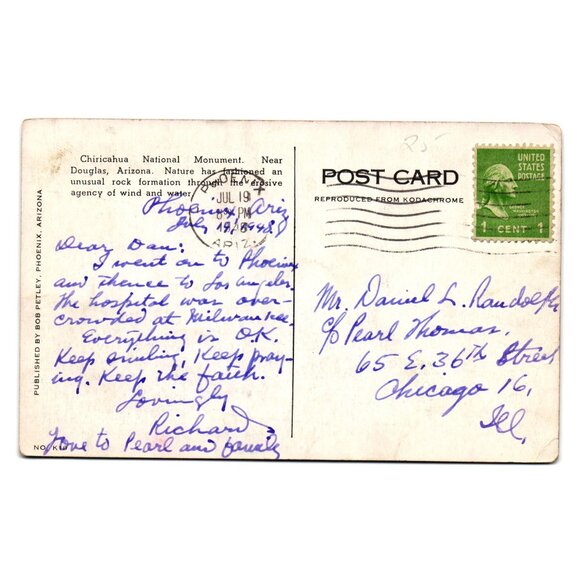 Chiricahua National Monument. Near
Douglas, Arizona. Nature has fashioned an
unusual rock formation through the erosive
agency of wind and water.
PUBLISHED BY BOB PETLEY, PHOENIX, ARIZONA
Phoenix, Ariz
July 19, 1948
Dear Dan:
I went on to Phoenix
and thence to Los Angeles.
The hospital was over-
crowded at Milwaukee.
Everything is O.K.
Keep smiling, Keep pray-
ing. Keep the faith.
Lovingly
Richard
Love to Pearl and family
PHOENIX
JUL 19
PM
1948
ARIZ.
POST CARD
REPRODUCED FROM KODACHROME
UNITED
STATES
POSTAGE
GEORGE
WASHINGTON
1 CENT 1
Mr. Daniel L. Randolph
c/o Pearl Thomas.
65 E. 36th Street
Chicago 16,
Ill.